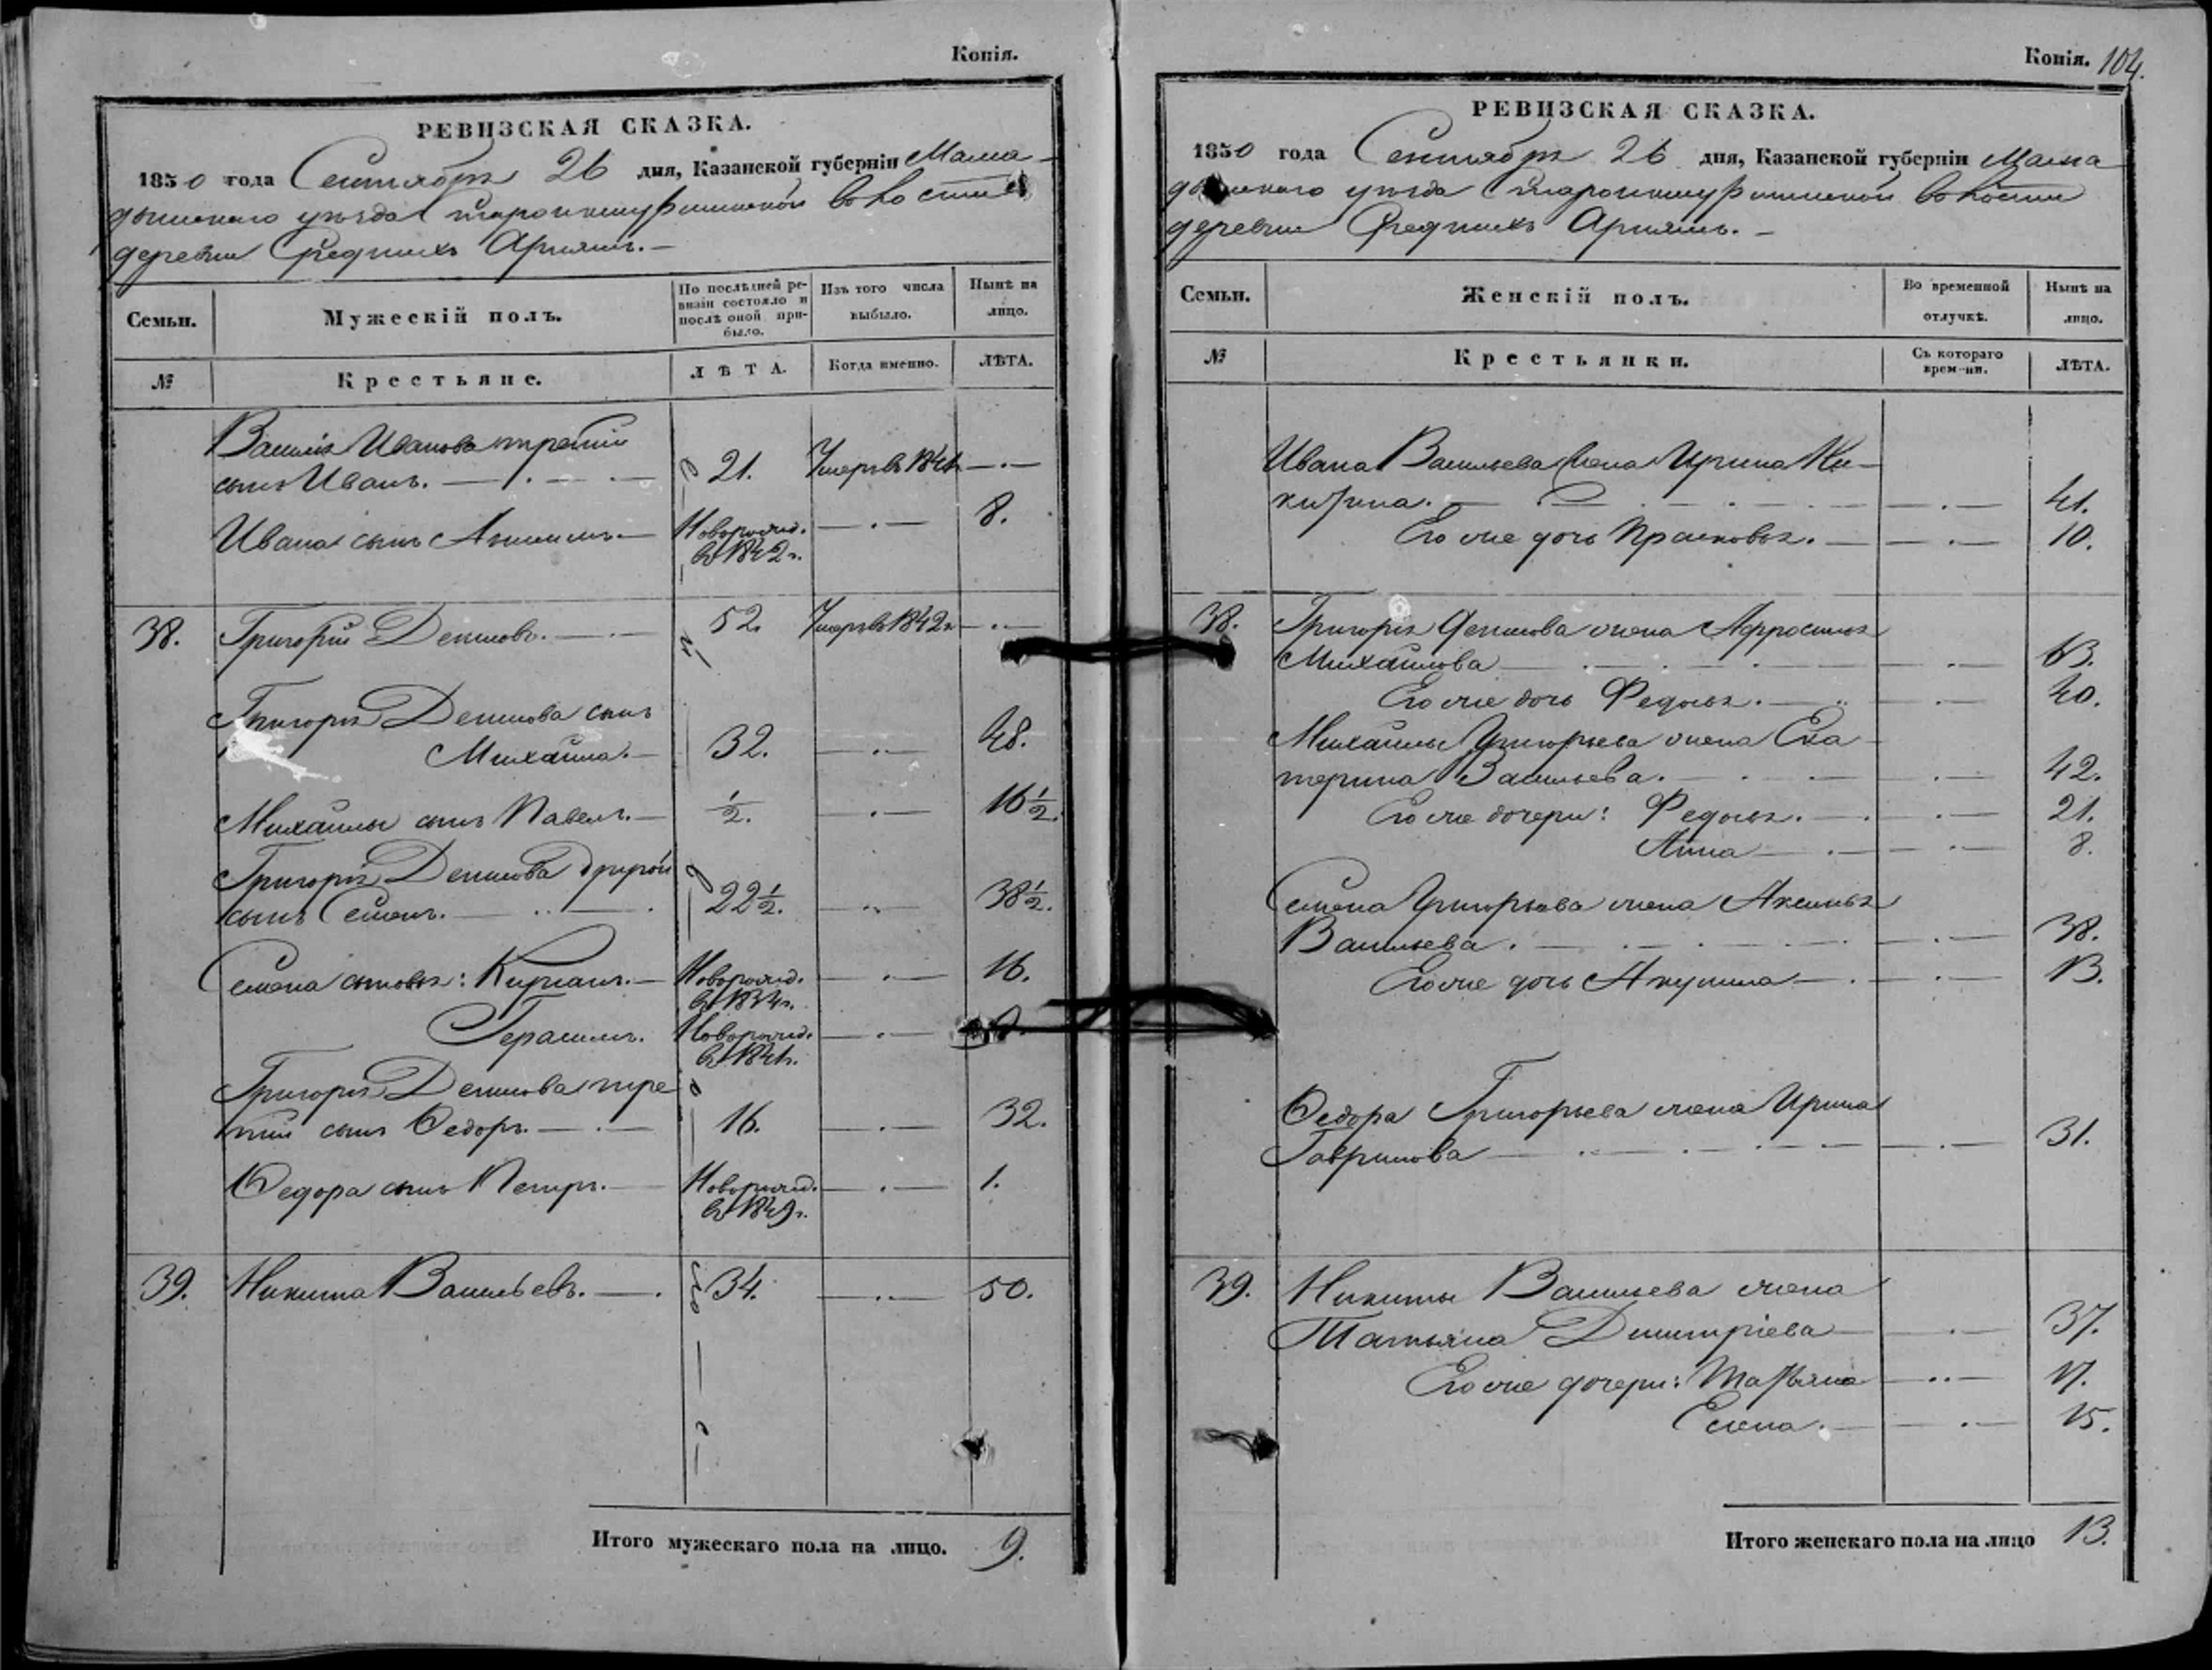 Копія.
РЕВИЗСКАЯ СКАЗКА.
1850 года Сентября 26 дня, Казанской губерніи Мама-
дышскаго уѣзда волости
деревни Среднихъ Арняшъ. —
Семьи. Мужескій полъ. По послѣдней ре-визіи состояло и послѣ оной при-было. Изъ того числа выбыло. Нынѣ на лицо.
№ Крестьяне. ЛѢТА. Когда именно. ЛѢТА.
Василія Иванова третій
сынъ Иванъ. — 21. Умеръ въ — · —
Ивана сынъ — Новорожд. — · — 8.
въ 1842 г.
38. Григорій Денисовъ. — 52. Умеръ въ 1842 г. — · —
Григорія Денисова сынъ
Михайла. — 32. — · — 48.
Михайлы сынъ Павелъ. — ½. — · — 16½.
Григорія Денисова другой
сынъ Семенъ. — 22½. — · — 38½.
Семена сыновья: — Новорожд. — · — 16.
въ 1834 г.
Герасимъ. Новорожд. — · —
Григорія Денисова тре-
тій сынъ Ѳедоръ. — 16. — · — 32.
Ѳедора сынъ Петръ. — Новорожд. — · — 1.
въ 1849 г.
39. Никита Васильевъ. — 34. — · — 50.
Итого мужескаго пола на лицо. 9.
Копія. 104.
РЕВИЗСКАЯ СКАЗКА.
1850 года Сентября 26 дня, Казанской губерніи Мама-
дышскаго уѣзда волости
деревни Среднихъ Арняшъ. —
Семьи. Женскій полъ. Во временной отлучкѣ. Нынѣ на лицо.
№ Крестьянки. Съ котораго врем-ни. ЛѢТА.
Ивана Васильева жена Ирина Ки-
— · — 41.
Его же дочь Прасковья. — · — 10.
38. Григорія Денисова жена Афросинья
Михайлова — · — 63.
Его же дочь Федосья. — · — 40.
Михайлы Григорьева жена Ека-
терина Васильева. — · — 42.
Его же дочери: Федосья. — · — 21.
Анна — · — 8.
Семена Григорьева жена Аксинья
Васильева. — · — 38.
Его же дочь Акулина — · — 13.
Ѳедора Григорьева жена Ирина
Гаврилова — · — 31.
39. Никиты Васильева жена
Татьяна Димитріева — · — 37.
Его же дочери: — · — 17.
Елена. — · — 15.
Итого женскаго пола на лицо 13.